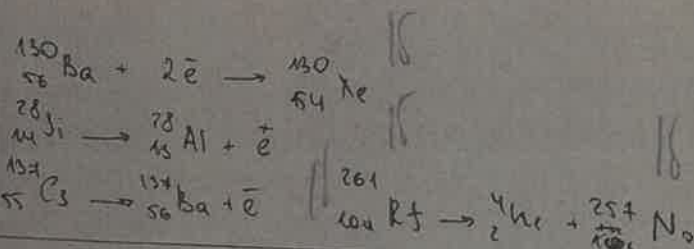 ¹³⁰₅₆Ba + 2ē → ¹³⁰₅₄Xe 1б
²⁸₁₄Si → ²⁸₁₃Al + e⁺ 1б
¹³⁷₅₅Cs → ¹³⁷₅₆Ba + ē
²⁶¹₁₀₄Rf → ⁴₂He + ²⁵⁷No 1б